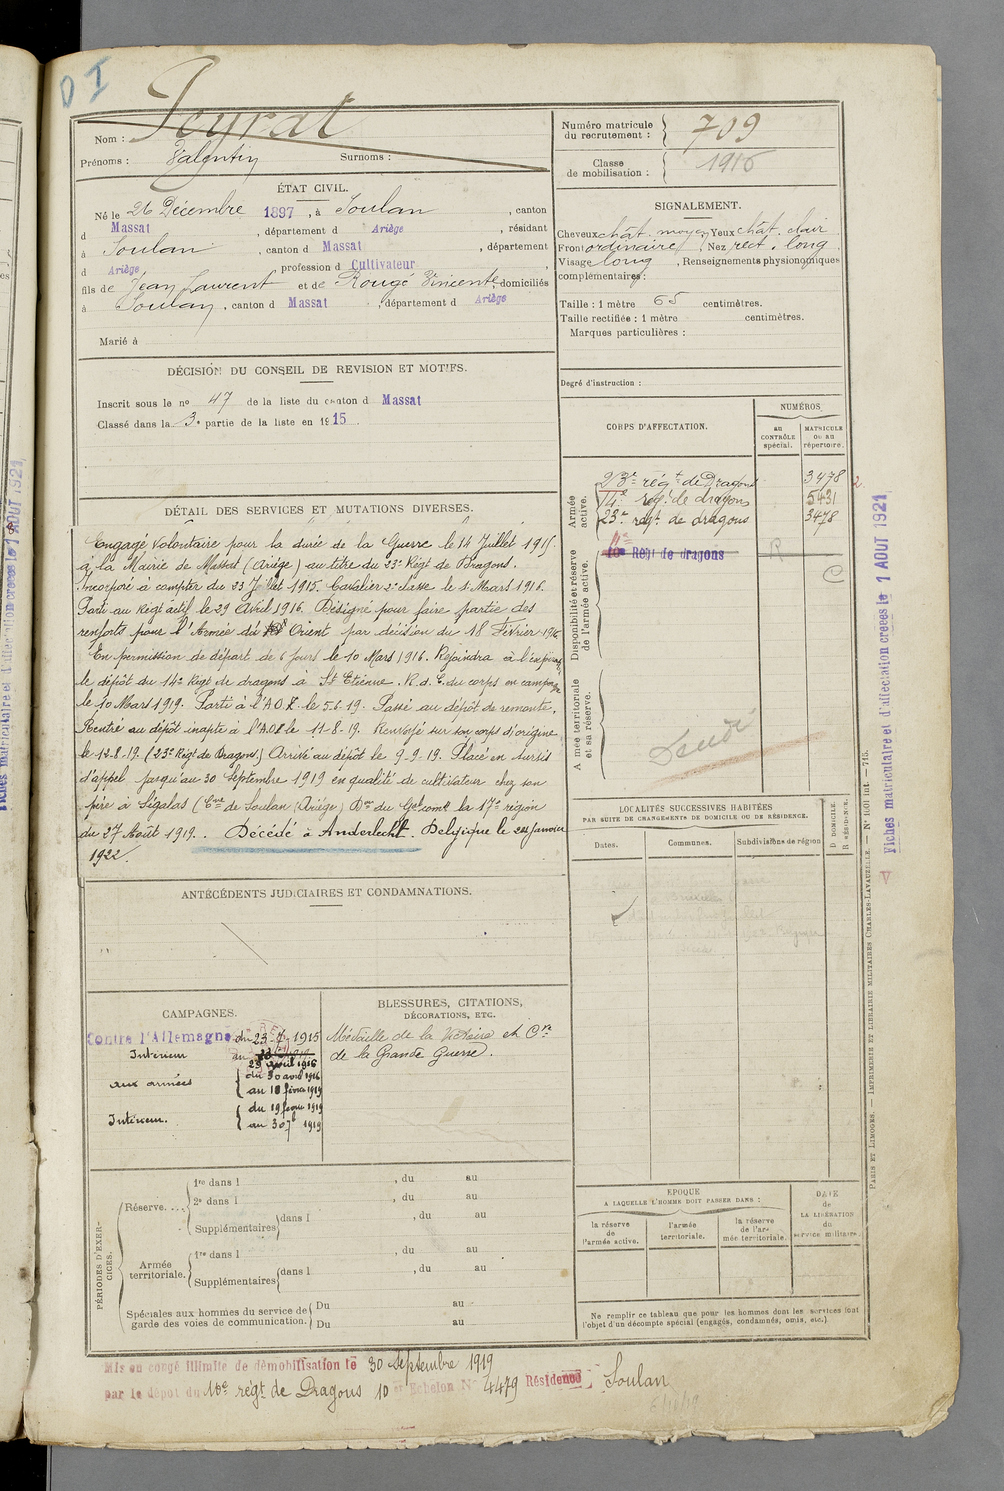 D I
Nom : Peyrat
Prénoms : Valentin Surnoms :
Numéro matricule du recrutement : 709
Classe de mobilisation : 1915
ÉTAT CIVIL.
Né le 26 Décembre 1897, à Soulan, canton
d Massat, département d Ariège, résidant
à Soulan, canton d Massat, département
d Ariège, profession d Cultivateur
fils de Jean Laurent et de Rougé Vincente, domiciliés
à Soulan, canton d Massat, département d Ariège
Marié à
SIGNALEMENT.
Cheveux chât. moyen Yeux chât. clair
Front ordinaire Nez rect. long
Visage long, Renseignements physionomiques
complémentaires :
Taille : 1 mètre 65 centimètres.
Taille rectifiée : 1 mètre centimètres.
Marques particulières :
Degré d'instruction :
DÉCISION DU CONSEIL DE REVISION ET MOTIFS.
Inscrit sous le no 47 de la liste du canton d Massat
Classé dans la 3e partie de la liste en 1915.
CORPS D'AFFECTATION.
NUMÉROS
au CONTRÔLE spécial.
MATRICULE ou au répertoire.
Armée active.
23e régt de Dragons 3478
14e régt de dragons 5431
23e régt de dragons 3478
2.
Disponibilité et réserve de l'armée active.
10e Régt de dragons R
C
A mée territoriale et sa réserve.
Fiches matriculaire et d'affectation créées le 1 AOUT 1921
DÉTAIL DES SERVICES ET MUTATIONS DIVERSES.
Engagé volontaire pour la durée de la Guerre le 14 Juillet 1915.
à la Mairie de Massat (Ariège) au titre du 23e Régt de Dragons.
Incorporé à compter du 23 Juillet 1915. Cavalier 2e classe le 1 Mars 1916.
Parti au Régt actif le 29 Avril 1916. Désigné pour faire partie des
renforts pour l'Armée du Orient par décision du 18 Février
En permission de départ de 6 jours le 10 Mars 1916. Rejoindra à l'expiron
le dépôt du 14e Régt de dragons à St Etienne. R. d. C. du corps en campagne
le 10 Mars 1919. Parti à l'A.O.F. le 5.6.19. Passé au dépôt de remonte.
Rentré au dépôt inapte à l'A.O.F. le 11-8-19. Renvoyé sur son corps d'origine
le 12.8.19. (23e Régt de Dragons.) Arrivé au dépôt le 9.9.19. Placé en sursis
d'appel jusqu'au 30 Septembre 1919 en qualité de cultivateur chez son
père à Ségalas (Cne de Soulan (Ariège) Don du Gal comt la 17e région
du 27 Août 1919. . Décédé à Anderlecht. Belgique le 24 Janvier
1922.
ANTÉCÉDENTS JUDICIAIRES ET CONDAMNATIONS.
LOCALITÉS SUCCESSIVES HABITÉES
PAR SUITE DE CHANGEMENTS DE DOMICILE OU DE RÉSIDENCE.
Dates. Communes. Subdivisions de région
D DOMICILE.
R RÉSIDENCE.
CAMPAGNES.
Contre l'Allemagne du 23-7-1915
Intérieur au
29 avril 1916
aux armées du 30 avril 1916
au 18 février 1919
Intérieur. du 19 février 1919
au 30 7b 1919
BLESSURES, CITATIONS,
DÉCORATIONS, ETC.
Médaille de la Victoire et Cve
de la Grande Guerre.
PÉRIODES D'EXERCICES.
Réserve.... 1re dans l , du au
2e dans l , du au
Supplémentaires dans l , du au
Armée territoriale. 1re dans l , du au
Supplémentaires dans l , du au
Spéciales aux hommes du service de garde des voies de communication. Du au
Du au
EPOQUE
A LAQUELLE L'HOMME DOIT PASSER DANS :
la réserve de l'armée active.
l'armée territoriale.
la réserve de l'armée territoriale.
DATE de LA LIBÉRATION du service militaire.
Ne remplir ce tableau que pour les hommes dont les services font
l'objet d'un décompte spécial (engagés, condamnés, omis, etc.)
PARIS ET LIMOGES. — IMPRIMERIE ET LIBRAIRIE MILITAIRES CHARLES-LAVAUZELLE.
Mis en congé illimité de démobilisation le 30 Septembre 1919
par le dépôt du 10e régt de Dragons 10 er Echelon N° 4479 Résidence : Soulan